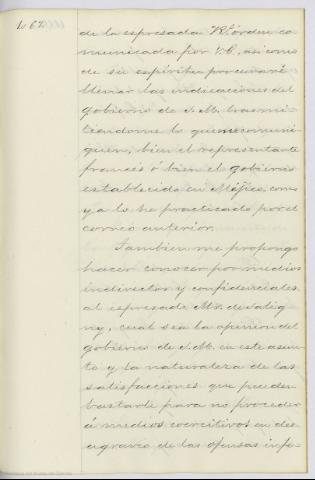 de la espresada Rl. órden co
municada por V.E., asi como
de su espíritu procuraré
llenar las indicaciones del
gobierno de S. M. trasmi
tiendome lo que me comuni-
quen, bien el representante
francés ó bien el gobierno
establecido en Méjico, como
ya lo he practicado por el
correo anterior.
Tambien me propongo
hacer conocer por medios
indirectos y confidenciales
al espresado Mr. de Salig
ny, cual sea la opinion del
gobierno de S. M. en este asun
to y la naturaleza de las
satisfacciones que pueden
bastarle para no proceder
á medios coercitivos en des-
agravio de las ofensas infe-